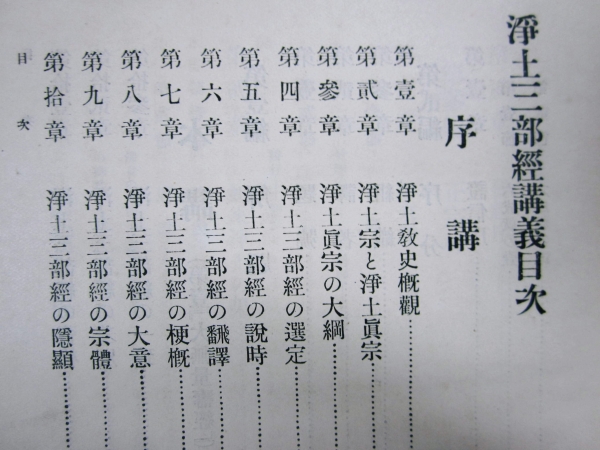 淨土三部經講義目次
序講
第壹章 淨土敎史槪觀
第貳章 淨土宗と淨土眞宗
第參章 淨土眞宗の大綱
第四章 淨土三部經の選定
第五章 淨土三部經の說時
第六章 淨土三部經の飜譯
第七章 淨土三部經の梗槪
第八章 淨土三部經の大意
第九章 淨土三部經の宗體
第拾章 淨土三部經の隱顯
目次